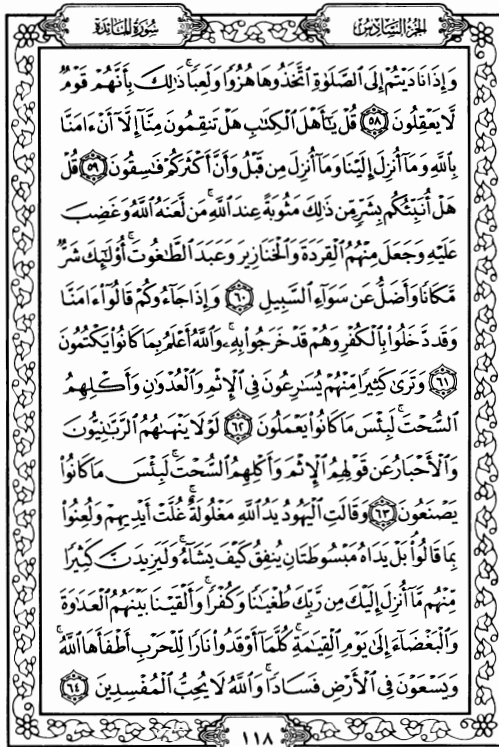 سُورَةُ المَائدة
الجزءُ السَّادِسُ
وَإِذَا نَادَيْتُمْ إِلَى الصَّلَوٰةِ اتَّخَذُوهَا هُزُوًا وَلَعِبًا ۚ ذَٰلِكَ بِأَنَّهُمْ قَوْمٌ
لَّا يَعْقِلُونَ ٥٨ قُلْ يَٰٓأَهْلَ الْكِتَٰبِ هَلْ تَنقِمُونَ مِنَّآ إِلَّآ أَنْ ءَامَنَّا
بِاللَّهِ وَمَآ أُنزِلَ إِلَيْنَا وَمَآ أُنزِلَ مِن قَبْلُ وَأَنَّ أَكْثَرَكُمْ فَٰسِقُونَ ٥٩ قُلْ
هَلْ أُنَبِّئُكُم بِشَرٍّ مِّن ذَٰلِكَ مَثُوبَةً عِندَ اللَّهِ ۚ مَن لَّعَنَهُ اللَّهُ وَغَضِبَ
عَلَيْهِ وَجَعَلَ مِنْهُمُ الْقِرَدَةَ وَالْخَنَازِيرَ وَعَبَدَ الطَّٰغُوتَ ۚ أُو۟لَٰٓئِكَ شَرٌّ
مَّكَانًا وَأَضَلُّ عَن سَوَآءِ السَّبِيلِ ٦٠ وَإِذَا جَآءُوكُمْ قَالُوٓا۟ ءَامَنَّا
وَقَد دَّخَلُوا۟ بِالْكُفْرِ وَهُمْ قَدْ خَرَجُوا۟ بِهِۦ ۚ وَاللَّهُ أَعْلَمُ بِمَا كَانُوا۟ يَكْتُمُونَ
٦١ وَتَرَىٰ كَثِيرًا مِّنْهُمْ يُسَٰرِعُونَ فِى الْإِثْمِ وَالْعُدْوَٰنِ وَأَكْلِهِمُ
السُّحْتَ ۚ لَبِئْسَ مَا كَانُوا۟ يَعْمَلُونَ ٦٢ لَوْلَا يَنْهَىٰهُمُ الرَّبَّٰنِيُّونَ
وَالْأَحْبَارُ عَن قَوْلِهِمُ الْإِثْمَ وَأَكْلِهِمُ السُّحْتَ ۚ لَبِئْسَ مَا كَانُوا۟
يَصْنَعُونَ ٦٣ وَقَالَتِ الْيَهُودُ يَدُ اللَّهِ مَغْلُولَةٌ ۚ غُلَّتْ أَيْدِيهِمْ وَلُعِنُوا۟
بِمَا قَالُوا۟ ۘ بَلْ يَدَاهُ مَبْسُوطَتَانِ يُنفِقُ كَيْفَ يَشَآءُ ۚ وَلَيَزِيدَنَّ كَثِيرًا
مِّنْهُم مَّآ أُنزِلَ إِلَيْكَ مِن رَّبِّكَ طُغْيَٰنًا وَكُفْرًا ۚ وَأَلْقَيْنَا بَيْنَهُمُ الْعَدَٰوَةَ
وَالْبَغْضَآءَ إِلَىٰ يَوْمِ الْقِيَٰمَةِ ۚ كُلَّمَآ أَوْقَدُوا۟ نَارًا لِّلْحَرْبِ أَطْفَأَهَا اللَّهُ ۚ
وَيَسْعَوْنَ فِى الْأَرْضِ فَسَادًا ۚ وَاللَّهُ لَا يُحِبُّ الْمُفْسِدِينَ ٦٤
١١٨